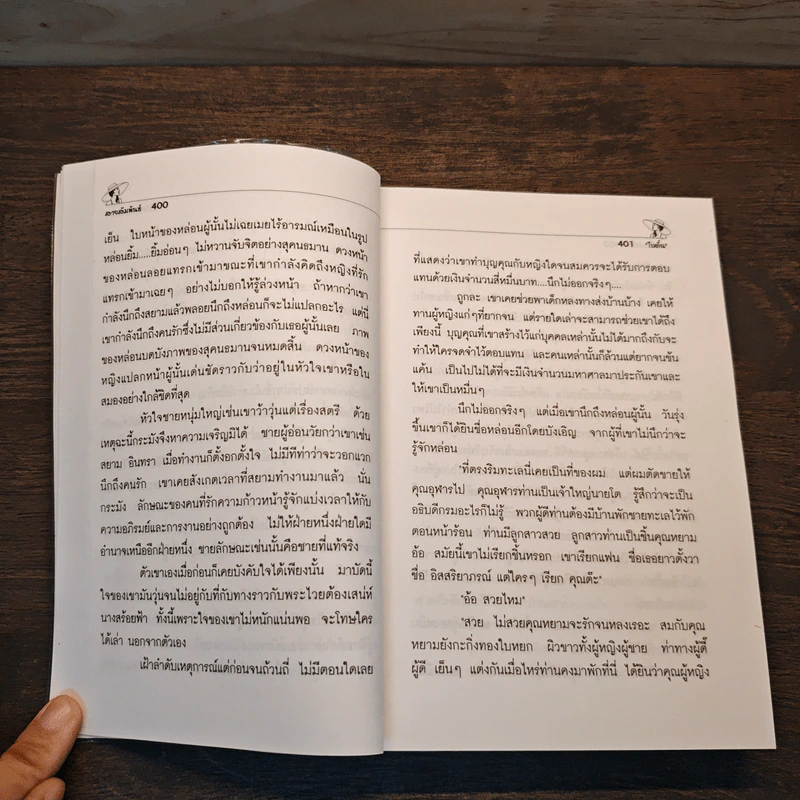 400
เย็น ใบหน้าของหล่อนผู้นั้นไม่เฉยเมยไร้อารมณ์เหมือนในรูป
หล่อนยิ้ม....ยิ้มอ่อนๆ ไม่หวานจับจิตอย่างสุคนธมาน ดวงหน้า
ของหล่อนลอยแทรกเข้ามาขณะที่เขากำลังคิดถึงหญิงที่รัก
แทรกเข้ามาเฉยๆ อย่างไม่บอกให้รู้ล่วงหน้า ถ้าหากว่าเขา
กำลังนึกถึงสยามแล้วพลอยนึกถึงหล่อนก็จะไม่แปลกอะไร แต่นี่
เขากำลังนึกถึงคนรักซึ่งไม่มีส่วนเกี่ยวข้องกับเธอผู้นั้นเลย ภาพ
ของหล่อนบดบังภาพของสุคนธมานจนหมดสิ้น ดวงหน้าของ
หญิงแปลกหน้าผู้นั้นเด่นชัดราวกับว่าอยู่ในหัวใจเขาหรือใน
สมองอย่างใกล้ชิดที่สุด
หัวใจชายหนุ่มใหญ่เช่นเขาว้าวุ่นแต่เรื่องสตรี ด้วย
เหตุฉะนี้กระมังจึงหาความเจริญมิได้ ชายผู้อ่อนวัยกว่าเขาเช่น
สยาม อินทรา เมื่อทำงานก็ตั้งอกตั้งใจ ไม่มีทีท่าว่าจะวอกแวก
นึกถึงคนรัก เขาเคยสังเกตเวลาที่สยามทำงานมาแล้ว นั่น
กระมัง ลักษณะของคนที่รักความก้าวหน้ารู้จักแบ่งเวลาให้กับ
ความอภิรมย์และการงานอย่างถูกต้อง ไม่ให้ฝ่ายหนึ่งฝ่ายใดมี
อำนาจเหนืออีกฝ่ายหนึ่ง ชายลักษณะเช่นนั้นคือชายที่แท้จริง
ตัวเขาเองเมื่อก่อนก็เคยบังคับใจได้เพียงนั้น มาบัดนี้
ใจของเขามันวุ่นจนไม่อยู่กับที่กับทางราวกับพระไวยต้องเสน่ห์
นางสร้อยฟ้า ทั้งนี้เพราะใจของเขาไม่หนักแน่นพอ จะโทษใคร
ได้เล่า นอกจากตัวเอง
เฝ้าลำดับเหตุการณ์แต่ก่อนจนถ้วนถี่ ไม่มีตอนใดเลย
401 "โบตั๋น"
ที่แสดงว่าเขาทำบุญคุณกับหญิงใดจนสมควรจะได้รับการตอบ
แทนด้วยเงินจำนวนสี่หมื่นบาท....นึกไม่ออกจริงๆ....
ถูกละ เขาเคยช่วยพาเด็กหลงทางส่งบ้านบ้าง เคยให้
ทานผู้หญิงแก่ๆที่ยากจน แต่รายใดเล่าจะสามารถช่วยเขาได้ถึง
เพียงนี้ บุญคุณที่เขาสร้างไว้แก่บุคคลเหล่านั้นไม่ได้มากถึงกับจะ
ทำให้ใครจดจำไว้ตอบแทน และคนเหล่านั้นก็ล้วนแต่ยากจนข้น
แค้น เป็นไปไม่ได้ที่จะมีเงินจำนวนมหาศาลมาประกันเขาและ
ให้เขาเป็นหมื่นๆ
นึกไม่ออกจริงๆ แต่เมื่อเขานึกถึงหล่อนผู้นั้น วันรุ่ง
ขึ้นเขาก็ได้ยินชื่อหล่อนอีกโดยบังเอิญ จากผู้ที่เขาไม่นึกว่าจะ
รู้จักหล่อน
"ที่ตรงริมทะเลนี่เคยเป็นที่ของผม แต่ผมตัดขายให้
คุณอุฬารไป คุณอุฬารท่านเป็นเจ้าใหญ่นายโต รู้สึกว่าจะเป็น
อธิบดีกรมอะไรก็ไม่รู้ พวกผู้ดีท่านต้องมีบ้านพักชายทะเลไว้พัก
ตอนหน้าร้อน ท่านมีลูกสาวสวย ลูกสาวท่านเป็นชิ้นคุณหยาม
อ้อ สมัยนี้เขาไม่เรียกชิ้นหรอก เขาเรียกแฟน ชื่อเธอยาวตั้งวา
ชื่อ อิสสริยาภรณ์ แต่ใครๆ เรียก คุณต๊ะ"
"อ้อ สวยไหม"
"สวย ไม่สวยคุณหยามจะรักจนหลงเรอะ สมกับคุณ
หยามยังกะกิ่งทองใบหยก ผิวขาวทั้งผู้หญิงผู้ชาย ท่าทางผู้ดี๊
ผู้ดี เย็นๆ แต่งกันเมื่อไหร่ท่านคงมาพักที่นี่ ได้ยินว่าคุณผู้หญิง